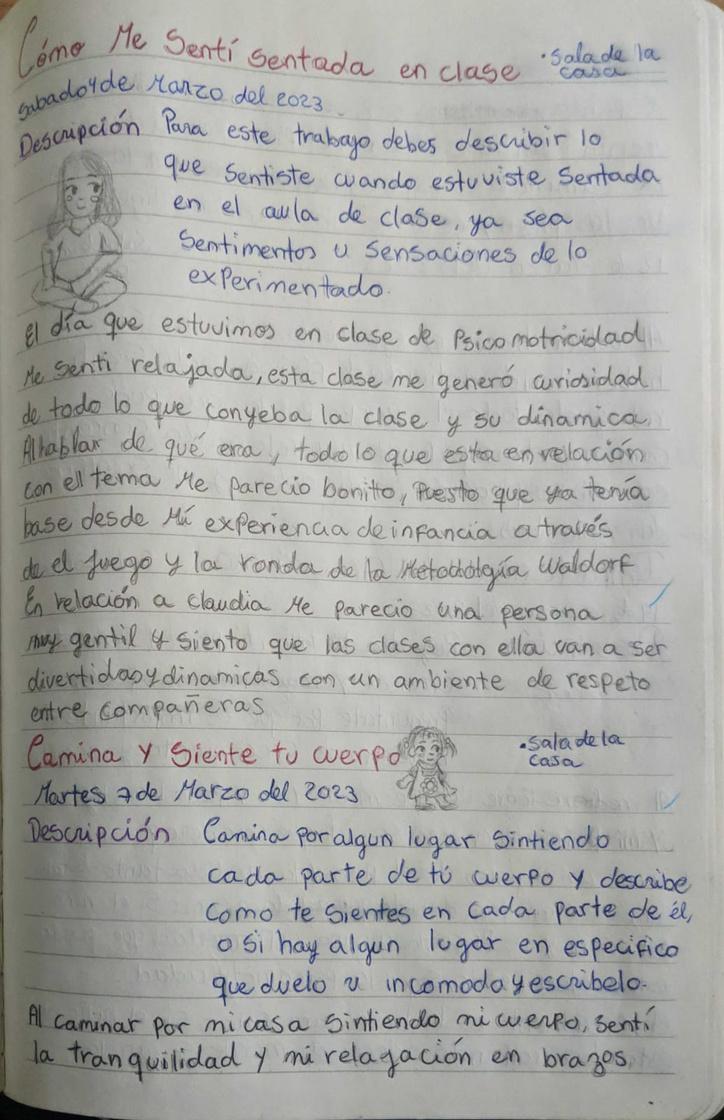 Cómo Me Sentí sentada en clase
• Sala de la
casa
sabado 4 de Marzo del 2023
Descripción Para este trabajo debes describir lo
que Sentiste cuando estuviste Sentada
en el aula de clase, ya sea
Sentimentos u Sensaciones de lo
experimentado.
El día que estuvimos en clase de Psicomotricidad
Me Senti relajada, esta clase me generó curiosidad
de todo lo que conyeba la clase y su dinamica.
Al hablar de qué era, todo lo que esta en relación
con el tema Me parecio bonito, Puesto que ya tenía
base desde Mí experiencia de infancia a través
de el juego y la ronda de la Metodología Waldorf
En relación a Claudia Me parecio una persona
muy gentil y siento que las clases con ella van a ser
divertidas y dinamicas con un ambiente de respeto
entre compañeras
Camina y Siente tu cuerpo
• Sala de la
casa
Martes 7 de Marzo del 2023
Descripción Camina por algun lugar Sintiendo
cada parte de tú cuerpo y describe
como te Sientes en cada parte de él,
o Si hay algun lugar en especifico
que duelo u incomoda y escribelo.
Al caminar por mi casa Sintiendo mi cuerpo, Sentí
la tranquilidad y mi relagación en brazos,